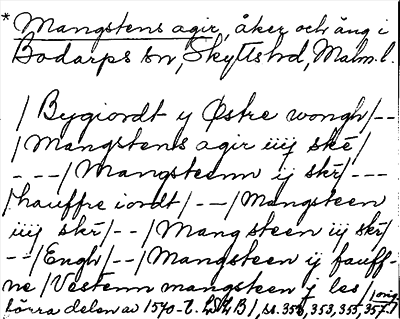 * Mangstens agir, åker och äng i
Bodarps sn, Skyttshd, Malm. l.
/ Bygiordt y Østre wongh /--
/ Mangstens agir iiij ske /
---/ Mangsteenn ij skr /---
/ hauffre iordt / --/ Mangsteen
iiij skr /--/ Mangsteen iij skr /
--/ Engh /--/ Mangsteen ij fauff-
ne / Vestenn mangsteen ij les /
förra delen av 1570-t. LLB /, ss. 353, 353, 355, 357.